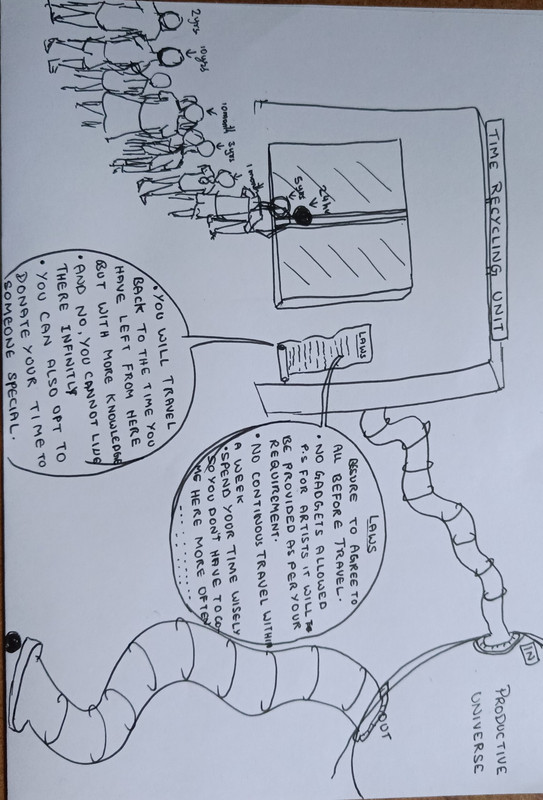 TIME RECYCLING UNIT
2 yrs
10 yrs
10 month
3 yrs
1 month
5 yrs
24 hr
LAWS
LAWS
BESURE TO AGREE TO
ALL BEFORE TRAVEL.
• NO GADGETS ALLOWED
P.S FOR ARTISTS IT WILL
BE PROVIDED AS PER YOUR
REQUIREMENT.
• NO CONTINOUS TRAVEL WITHIN
A WEEK
• SPEND YOUR TIME WISELY
SO YOU DON'T HAVE TO CO
ME HERE MORE OFTEN
..........
• YOU WILL TRAVEL
BACK TO THE TIME YOU
HAVE LEFT FROM HERE
BUT WITH MORE KNOWLEDGE
• AND NO, YOU CANNOT LIVE
THERE INFINITLY
• YOU CAN ALSO OPT TO
DONATE YOUR TIME TO
SOMEONE SPECIAL.
IN
PRODUCTIVE
UNIVERSE
OUT